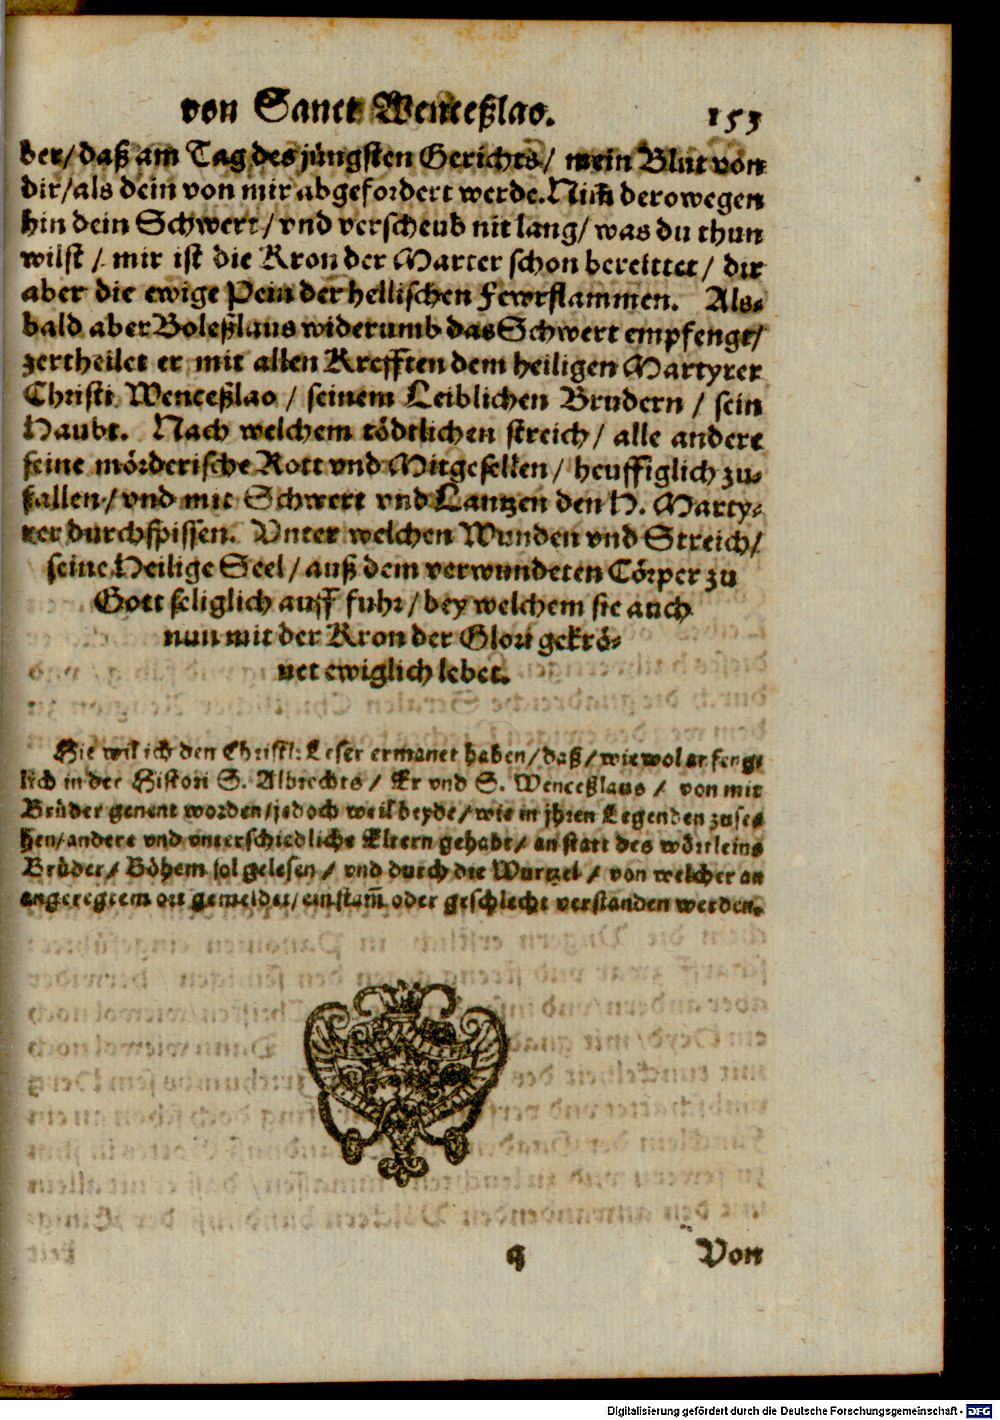 von Sanct Wenceßlao. 153
der/ daß am Tag des jüngsten Gerichts/ mein Blut von
dir/ als dein von mir abgefordert werde. Nim̃ derowegen
hin dein Schwert/ vnd verscheub nit lang/ was du thun
wilst/ mir ist die Kron der Marter schon bereittet/ dir
aber die ewige Pein der hellischen Fewrflammen. Als-
bald aber Boleßlaus widerumb das Schwert empfenget/
zertheilet er mit allen Krefften dem heiligen Martyrer
Christi Wenceßlao/ seinem Leiblichen Brudern/ sein
Haubt. Nach welchem tödtlichen streich/ alle andere
seine mörderische Rott vnd Mitgesellen/ heuffiglich zu-
fallen/ vnd mit Schwert vnd Lantzen den H. Marty-
rer durchspissen. Vnter welchen Wunden vnd Streich/
seine Heilige Seel/ auß dem verwundeten Cörper zu
Gott seliglich auff fuhr/ bey welchem sie auch
nun mit der Kron der Glori gekrö-
net ewiglich lebet.
Hie wil ich den Christl: Leser ermanet haben/ daß/ wiewol anfeng-
lich in der Histori S. Albrechts/ Er vnd S. Wenceßlaus/ von mir
Brüder genent worden/ jedoch weil beyde/ wie in jhren Legenden zuse-
hen/ andere vnd vnterschiedliche Eltern gehabt/ an statt des wörtleins
Brüder/ Böhem sol gelesen/ vnd durch die Wurtzel/ von welcher an
angeregtem ort gemeldet/ ein stam̃ oder geschlecht verstanden werden.
q Von
Digitalisierung gefördert durch die Deutsche Forschungsgemeinschaft - DFG